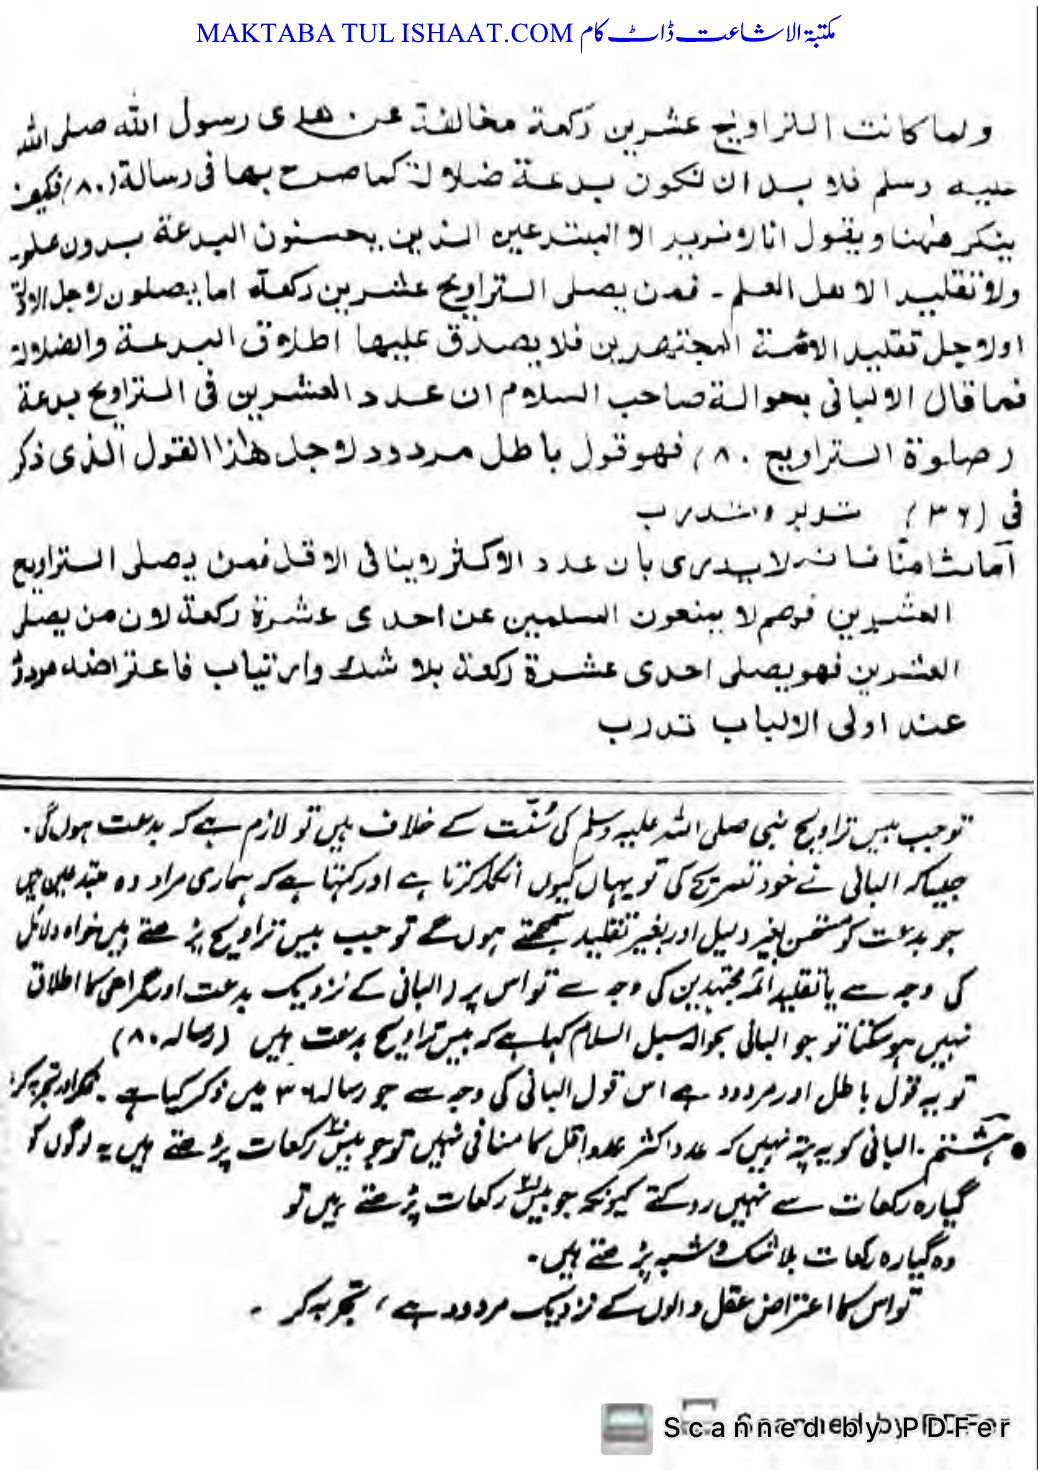 MAKTABA TUL ISHAAT.COM مکتبۃ الاشاعت ڈاٹ کام
ولما كانت التراويح عشرين ركعة مخالفة عن هدى رسول الله صلى الله
عليه وسلم فلا بد ان تكون بدعة ضلالة كما صرح بها فى رسالة (٨٠) فكيف
ينكر ههنا ويقول انا لا نريد الا المبتدعين الذين يحسنون البدعة بدون علم
ولا تقليد الاهل العلم ۔ فمن يصلى التراويح عشرين ركعة اما يصلون لاجل الادلة
او لاجل تقليد الائمة المجتهدين فلا يصدق عليها اطلاق البدعة والضلالة
فما قال الالبانى بحوالة صاحب السلام ان عدد العشرين فى التراويح بدعة
(صلوة التراويح ٨٠) فهو قول باطل مردود لاجل هذا القول الذى ذكر
فى (٣٦) تدبر وتدرب
اما ثامنا فانه لا يدرى بان عدد الاكثر لا ينافى الاقل فمن يصلى التراويح
العشرين فهم لا يمنعون المسلمين عن احدى عشرة ركعة لان من يصلى
العشرين فهو يصلى احدى عشرة ركعة بلا شك وارتياب فاعتراضه مردود
عند اولى الالباب تدرب
تو جب بیس تراویح نبی صلی اللہ علیہ وسلم کی سُنّت کے خلاف ہیں تو لازم ہے کہ بدعت ہوں گی۔
جیسا کہ البانی نے خود تصریح کی تو یہاں کیوں انکار کرتا ہے اور کہتا ہے کہ ہماری مراد وہ مبتدعین ہیں
جو بدعت کو مستحسن بغیر دلیل اور بغیر تقلید سمجھتے ہوں گے تو جب بیس تراویح پڑھتے ہیں خواہ دلائل
کی وجہ سے یا تقلید ائمہ مجتہدین کی وجہ سے تو اس پر (البانی کے نزدیک بدعت اور گمراہی کا اطلاق
نہیں ہو سکتا تو جو البانی بحوالہ سبل السلام کہا ہے کہ بیس تراویح بدعت ہیں (رسالہ ٨٠)
تو یہ قول باطل اور مردود ہے اس قول البانی کی وجہ سے جو رسالہ ٣٦ میں ذکر کیا ہے ۔ فکر اور تجربہ کر
• ہشتم ۔ البانی کو یہ پتہ نہیں کہ عدد اکثر عدد اقل کا منافی نہیں تو جو بیس رکعات پڑھتے ہیں یہ لوگوں کو
گیارہ رکعات سے نہیں روکتے کیونکہ جو بیس رکعات پڑھتے ہیں تو
وہ گیارہ رکعات بلا شک و شبہ پڑھتے ہیں۔
تو اس کا اعتراض عقل والوں کے نزدیک مردود ہے ، تجربہ کر ۔
Scanned by PDFer